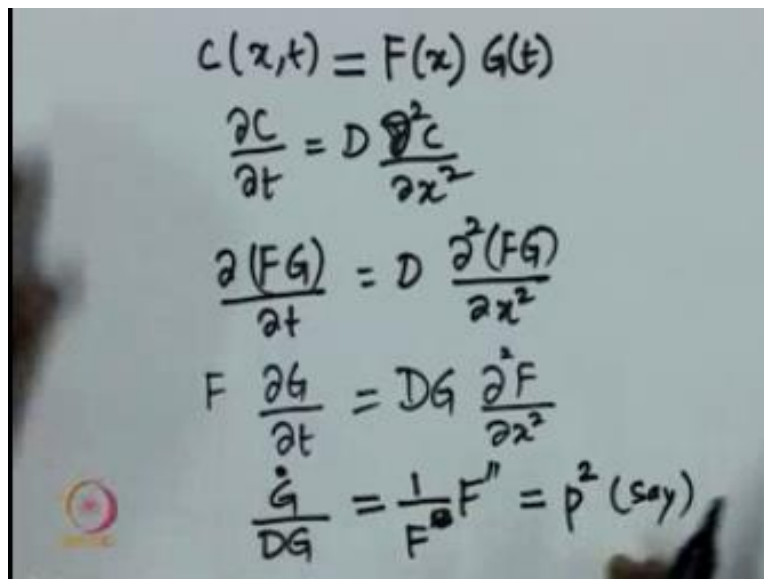 C(x,t) = F(x) G(t)
∂C/∂t = D ∂²C/∂x²
∂(FG)/∂t = D ∂²(FG)/∂x²
F ∂G/∂t = DG ∂²F/∂x²
Ġ/DG = 1/F F'' = p² (say)